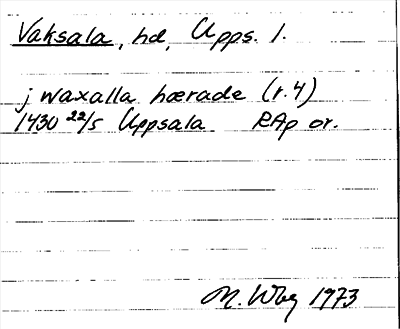 Vaksala, hd, Upps. l.
j waxalla hærade (r.4)
1430 22/5 Uppsala RAp or.
M. Wbg 1973